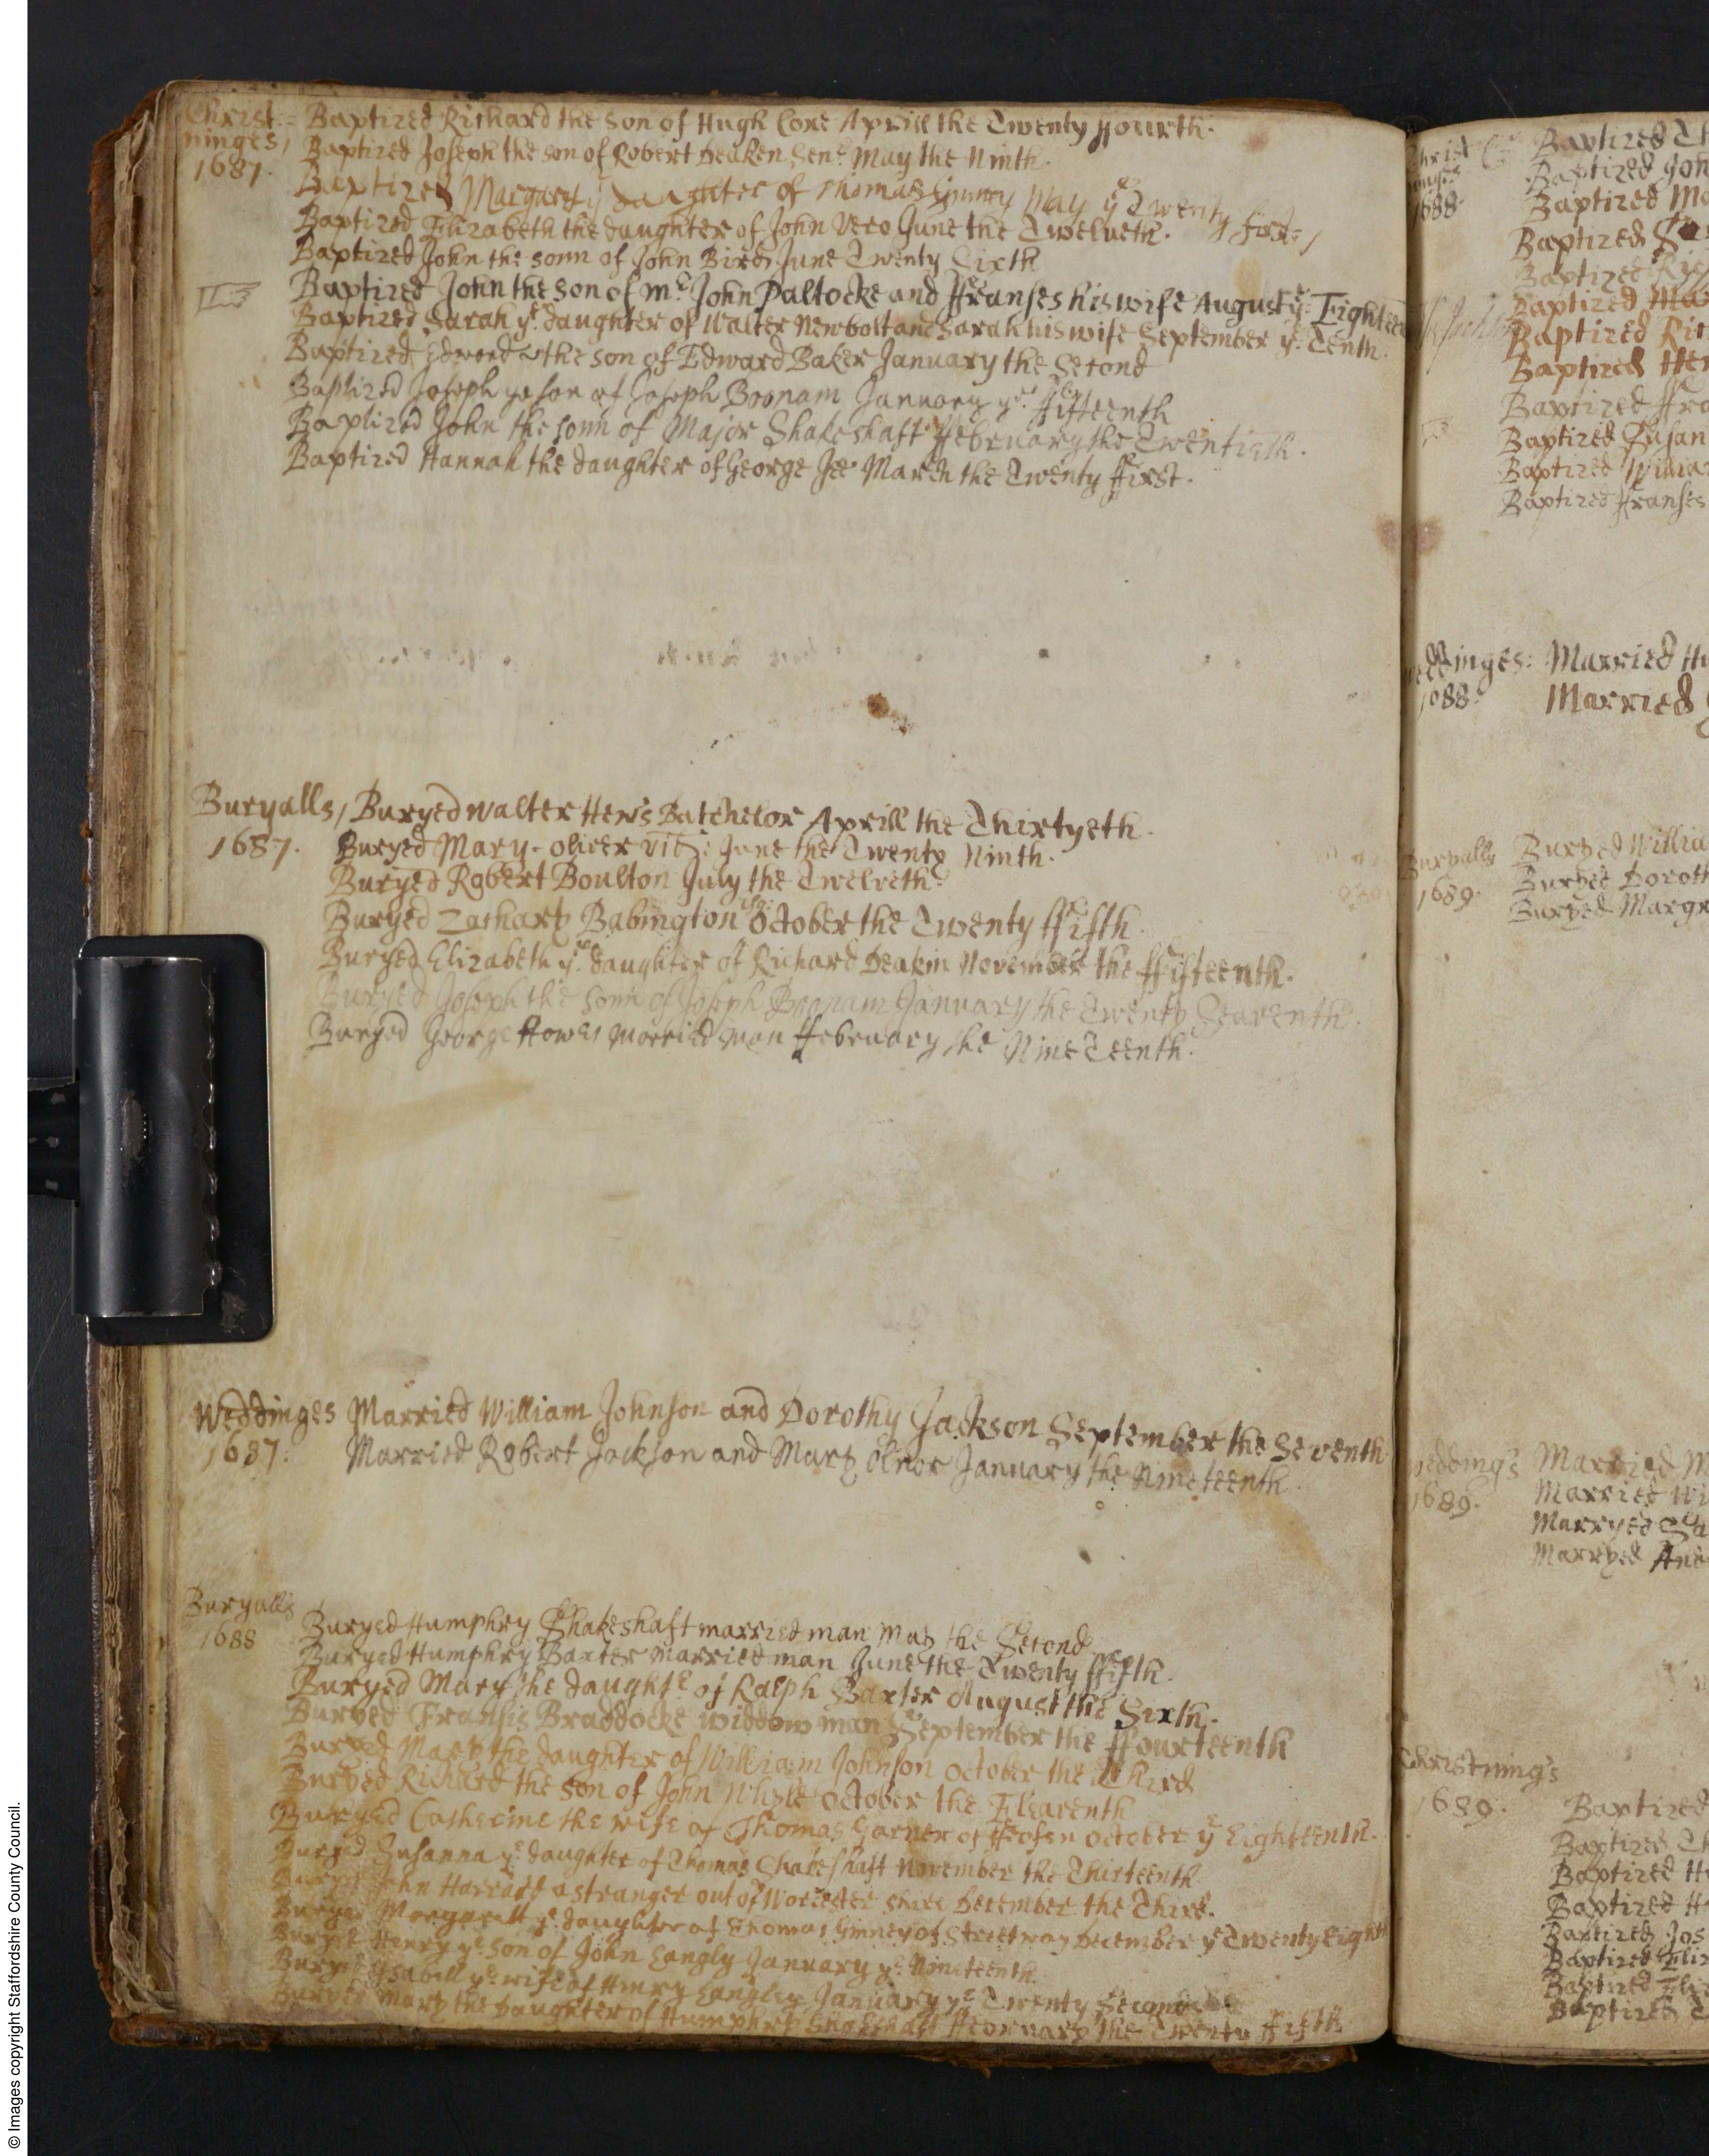 Christ:= Baptized Richard the Son of Hugh Core Aprill the Twenty ffourth.
ninges, Baptized Joseph the son of Robert Deaken Senr May the Ninth.
1687. Baptized Margarey ye daughter of Thomas Ginney May ye Twenty first
Baptized Elizabeth the daughter of John Vero June the Twelveth.
Baptized John the sonn of John Bird June Twenty Sixth
Baptized John the Son of mr John Paltocke and ffranses his wife August ye Eighteen
Baptized Sarah ye daughter of Walter Newbolt and Sarah his wife September ye Tenth.
Baptized Edward the son of Edward Baker January the Second
Baptized Joseph ye son of Joseph Boonam January ye ffifteenth
Baptized John the sonn of Major Shakeshaft ffebruary the Twentieth.
Baptized Hannah the daughter of George Gee March the Twenty ffirst.
Buryalls, Buryed Walter Hews Batchelor Aprill the Thirtyeth.
1687. Buryed Mary Oliver vid: June the Twenty Ninth.
Buryed Robert Boulton July the Twelveth.
Buryed Zachary Babington Esq: October the Twenty ffifth
Buryed Elizabeth ye daughter of Richard Deakin November the ffifteenth.
Buryed Joseph the sonn of Joseph Boonam January the Twenty Seaventh.
Buryed George Howes Married Man ffebruary the NineTeenth.
Weddinges Married William Johnson and Dorothy Jackson September the Seventh
1687. Married Robert Jackson and Mary Olner January the Nineteenth.
Buryalls
1688 Buryed Humphry Shakeshaft married man May the Second
Buryed Humphry Baxter Married man June the Twenty ffifth.
Buryed Mary the daughtr of Ralph Baxter August the Sixth.
Buryed Fransis Braddocke widdow man September the ffourteenth
Buryed Mary the daughter of William Johnson October the Third
Buryed Richard the son of John Whyle October the Eleaventh
Buryed Catherine the wife of Thomas Garner of October ye Eighteenth.
Buryed Susanna ye daughter of Thomas Shakeshaft November the Thirteenth.
Buryed John a stranger out of Worcester shire December the Third.
Buryed Margarett ye daughter of Thomas Ginney of Streetway December ye Twenty Eight
Buryed Henry ye son of John Langly January ye Nineteenth.
Buryed Isabell ye wife of Henry Langley January ye Twenty Second
Buryed Mary the Daughter of Humphry Shakeshaft ffebruary the Twenty ffifth
Baptized
1688
Baptized
Baptized
Baptized
Baptized
Baptized
Baptized
Baptized
Baptized
Baptized Susan
Baptized
Baptized ffranses
Married
1688. Married
Buryalls Buryed
1689. Buryed
Buryed
Married
1689. Married
Marryed
Marryed
Christnings
1689. Baptized
Baptized
Baptized
Baptized
Baptized
Baptized
Baptized
Baptized
© Images copyright Staffordshire County Council.